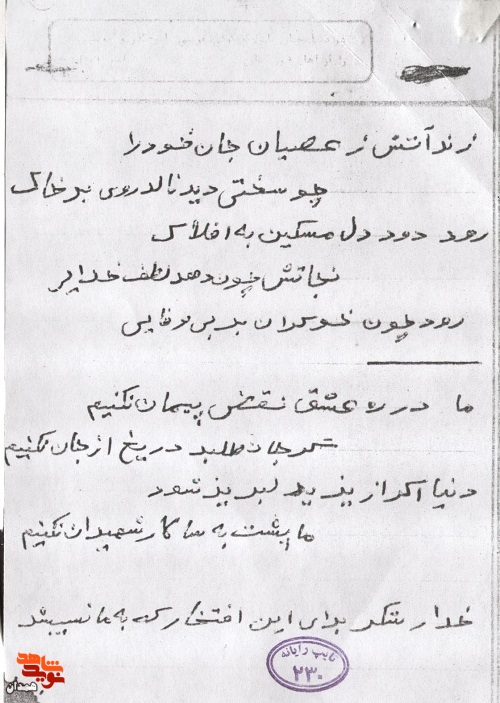 زند آتش ز عصیان جان خود را
چو سختی دید نالد روی بر خاک
رود دود دل مسکین به افلاک
نجاتش چون دهد لطف خدایی
رود چون خو کران بد بی وفایی
ما در ره عشق نقض پیمان نکنیم
گر جان طلبد دریغ از جان نکنیم
دنیا اگر از یزید لبریز شود
ما پشت به سالار شهیدان نکنیم
خدا را شکر برای این افتخار که به ما
تایپ رایانه
۲۳۰
نوید شاهد
همدان